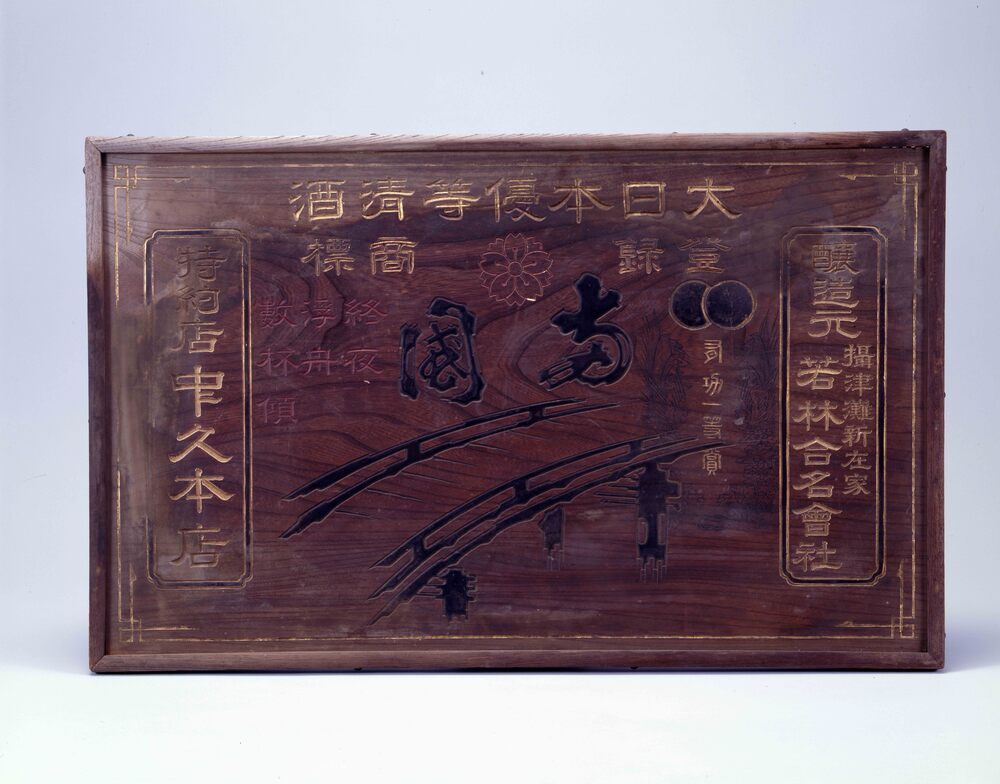 大日本優等清酒
登録商標
釀造元
攝津灘新在家
若林合名會社
有功一等賞
両國
終夜
浮舟
數杯傾
特約店
久本店